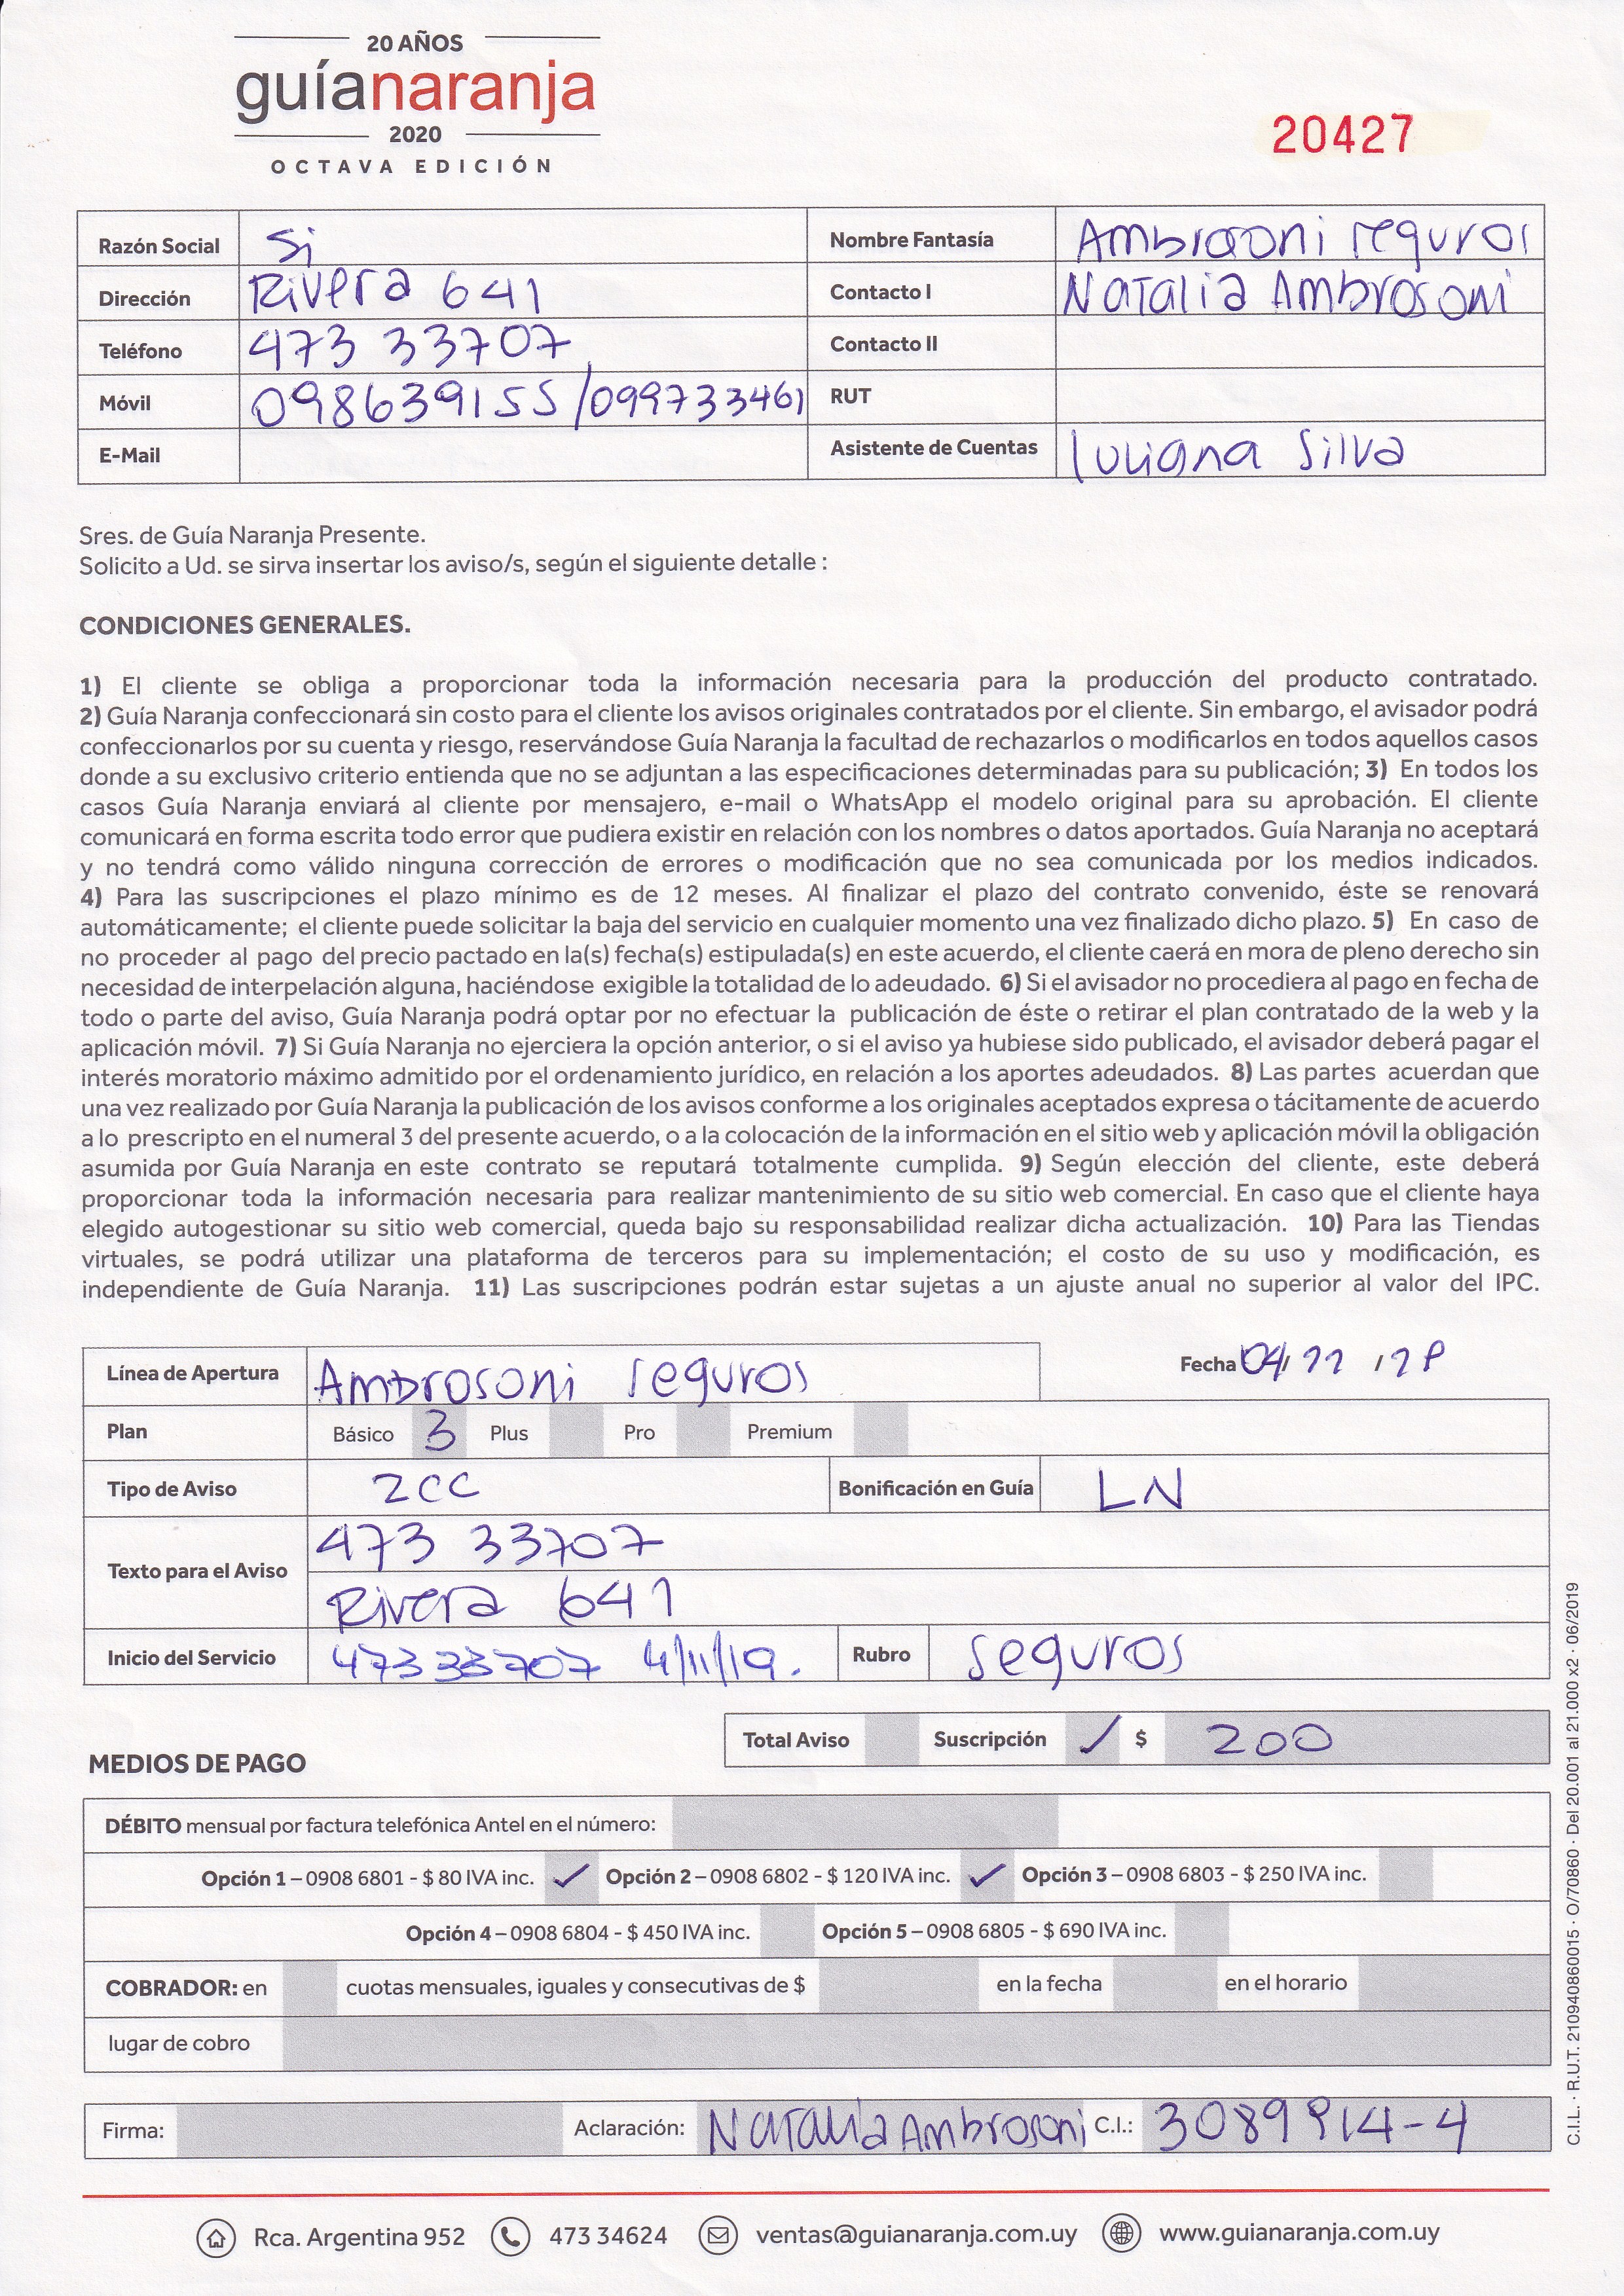 20 AÑOS
guíanaranja
2020
OCTAVA EDICIÓN
20427
Razón Social Si Nombre Fantasía Ambrosoni seguros
Dirección Rivera 641 Contacto I Natalia Ambrosoni
Teléfono 473 33707 Contacto II
Móvil 098639155 /099733461 RUT
E-Mail Asistente de Cuentas Luliana Silva
Sres. de Guía Naranja Presente.
Solicito a Ud. se sirva insertar los aviso/s, según el siguiente detalle :
CONDICIONES GENERALES.
1) El cliente se obliga a proporcionar toda la información necesaria para la producción del producto contratado.
2) Guía Naranja confeccionará sin costo para el cliente los avisos originales contratados por el cliente. Sin embargo, el avisador podrá
confeccionarlos por su cuenta y riesgo, reservándose Guía Naranja la facultad de rechazarlos o modificarlos en todos aquellos casos
donde a su exclusivo criterio entienda que no se adjuntan a las especificaciones determinadas para su publicación; 3) En todos los
casos Guía Naranja enviará al cliente por mensajero, e-mail o WhatsApp el modelo original para su aprobación. El cliente
comunicará en forma escrita todo error que pudiera existir en relación con los nombres o datos aportados. Guía Naranja no aceptará
y no tendrá como válido ninguna corrección de errores o modificación que no sea comunicada por los medios indicados.
4) Para las suscripciones el plazo mínimo es de 12 meses. Al finalizar el plazo del contrato convenido, éste se renovará
automáticamente; el cliente puede solicitar la baja del servicio en cualquier momento una vez finalizado dicho plazo. 5) En caso de
no proceder al pago del precio pactado en la(s) fecha(s) estipulada(s) en este acuerdo, el cliente caerá en mora de pleno derecho sin
necesidad de interpelación alguna, haciéndose exigible la totalidad de lo adeudado. 6) Si el avisador no procediera al pago en fecha de
todo o parte del aviso, Guía Naranja podrá optar por no efectuar la publicación de éste o retirar el plan contratado de la web y la
aplicación móvil. 7) Si Guía Naranja no ejerciera la opción anterior, o si el aviso ya hubiese sido publicado, el avisador deberá pagar el
interés moratorio máximo admitido por el ordenamiento jurídico, en relación a los aportes adeudados. 8) Las partes acuerdan que
una vez realizado por Guía Naranja la publicación de los avisos conforme a los originales aceptados expresa o tácitamente de acuerdo
a lo prescripto en el numeral 3 del presente acuerdo, o a la colocación de la información en el sitio web y aplicación móvil la obligación
asumida por Guía Naranja en este contrato se reputará totalmente cumplida. 9) Según elección del cliente, este deberá
proporcionar toda la información necesaria para realizar mantenimiento de su sitio web comercial. En caso que el cliente haya
elegido autogestionar su sitio web comercial, queda bajo su responsabilidad realizar dicha actualización. 10) Para las Tiendas
virtuales, se podrá utilizar una plataforma de terceros para su implementación; el costo de su uso y modificación, es
independiente de Guía Naranja. 11) Las suscripciones podrán estar sujetas a un ajuste anual no superior al valor del IPC.
Línea de Apertura Ambrosoni seguros Fecha 04/ 11 /
Plan Básico 3 Plus Pro Premium
Tipo de Aviso 2CC Bonificación en Guía LN
Texto para el Aviso 473 33707
Rivera 641
Inicio del Servicio 47333707 4/11/19. Rubro seguros
Total Aviso Suscripción ✓ $ 200
MEDIOS DE PAGO
DÉBITO mensual por factura telefónica Antel en el número:
Opción 1 – 0908 6801 - $ 80 IVA inc. ✓ Opción 2 – 0908 6802 - $ 120 IVA inc. ✓ Opción 3 – 0908 6803 - $ 250 IVA inc.
Opción 4 – 0908 6804 - $ 450 IVA inc. Opción 5 – 0908 6805 - $ 690 IVA inc.
COBRADOR: en cuotas mensuales, iguales y consecutivas de $ en la fecha en el horario
lugar de cobro
Firma: Aclaración: Natalia Ambrosoni C.I.: 3089914-4
Rca. Argentina 952 473 34624 ventas@guianaranja.com.uy www.guianaranja.com.uy
C.I.L. · R.U.T. 210940860015 · O/70860 · Del 20.001 al 21.000 x2 · 06/2019